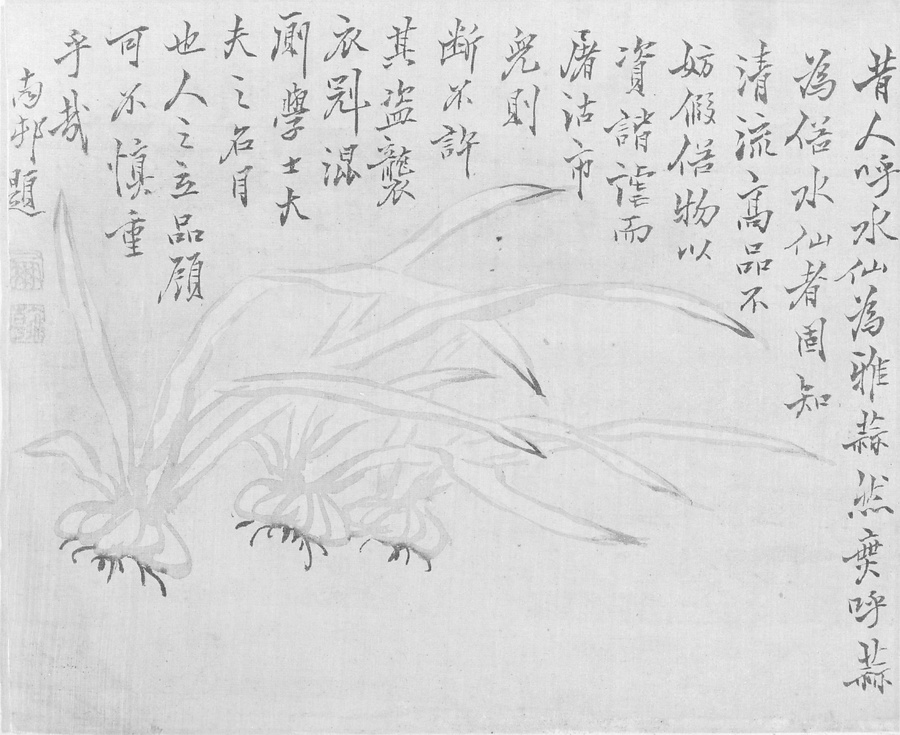 昔人呼水仙為雅蒜然奠呼蒜
為俗水仙者固知
清流高品不
妨假俗物以
資諧謔而
屠沽市
兒則
斷不許
其盜襲
衣冠混
廁學士大
夫之名目
也人之立品顧
可不慎重
乎哉
南邨題